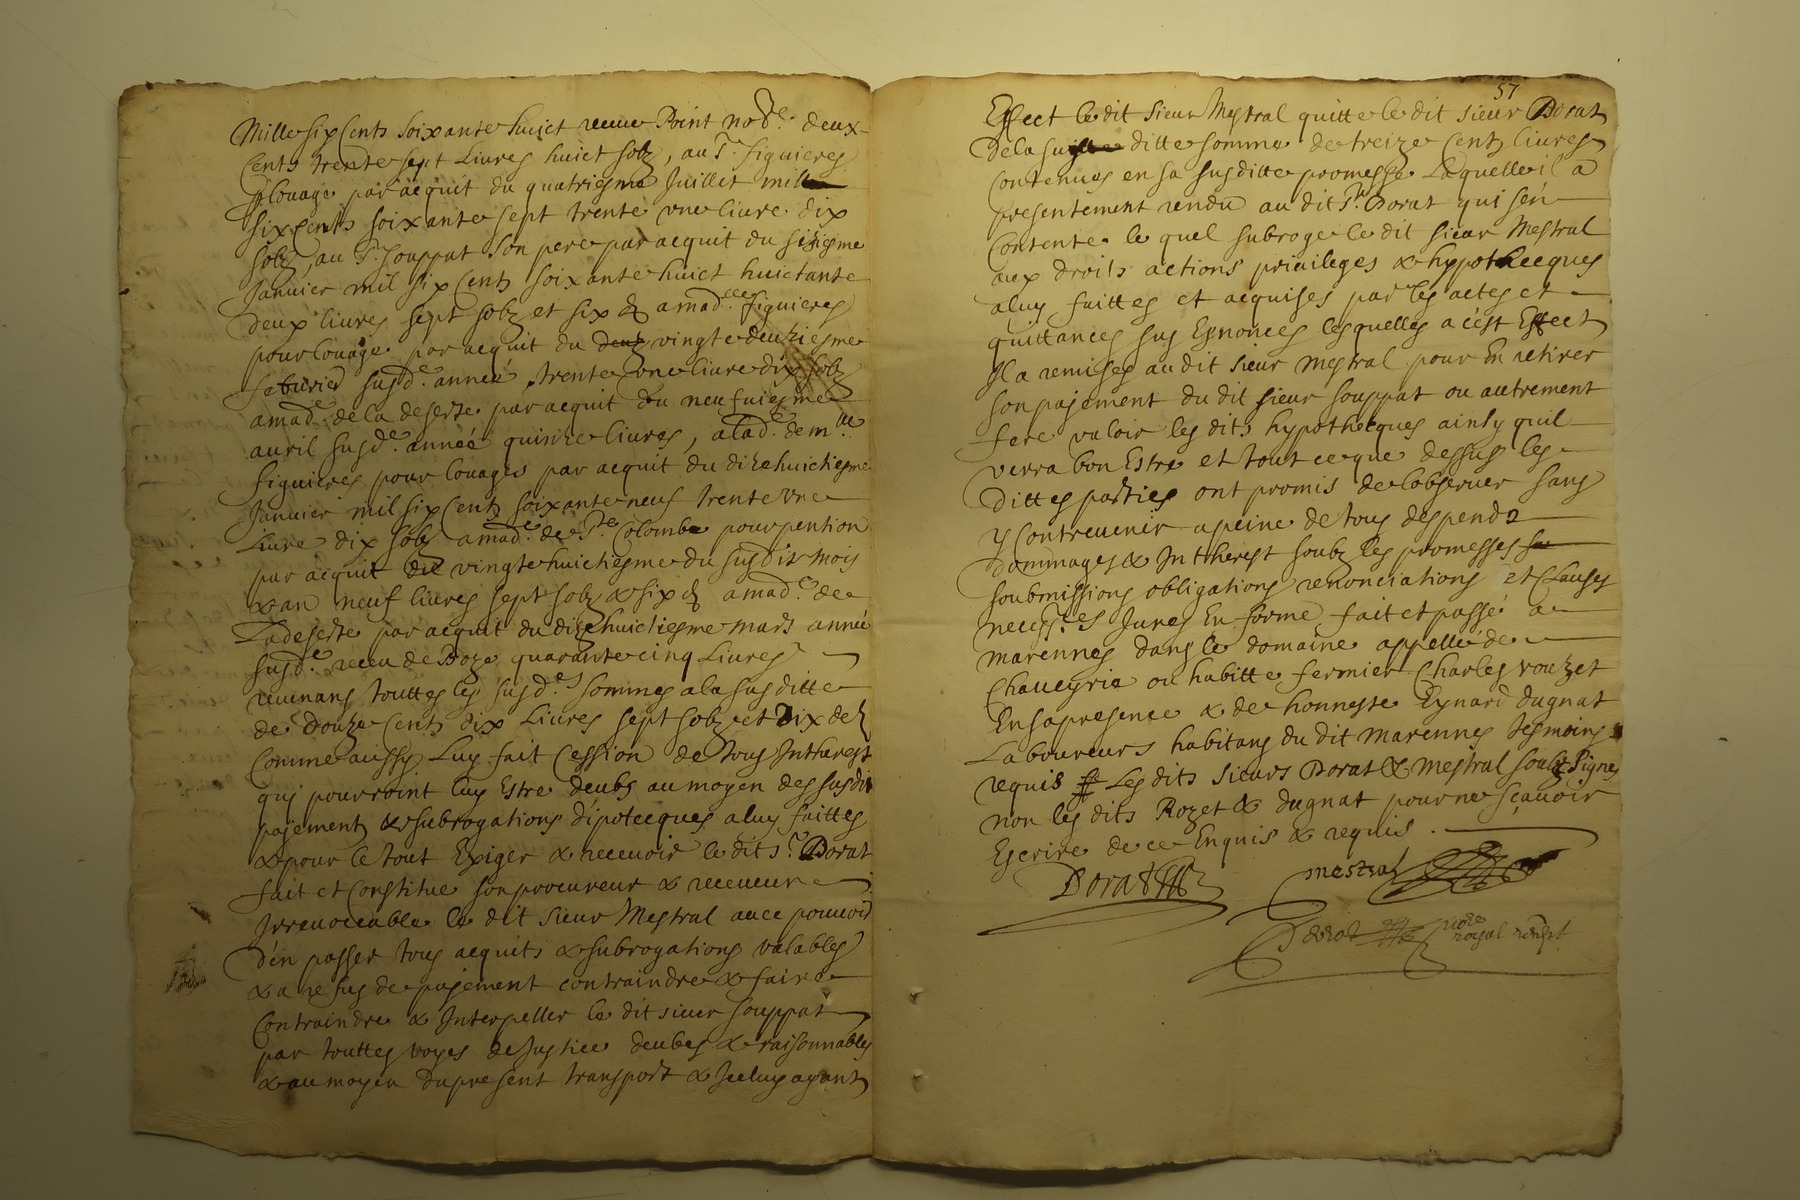 Mille six Cents soixante huict receue Point no.re deux
Cents trente sept Livres huict solz, au Sr. figuieres
p louage par acquit du quatriesme Juillet mille
six Cents soixante sept trente une livre dix
solz, au Sr. Souppat son pere par acquit du sixiesme
Janvier mil six Cents soixante huict huictante
deux livres sept solz et six d a mad.lle figuieres
pour louage par acquit du deux vingt deuxiesme
feburier susd.e année trente une livre dix solz
a mad.e de la deserte par acquit du neufuiesme
auril susd.e année quinze livres, a lad.e dem.lle
figuieres pour louages par acquit du dixehuictiesme
Janvier mil six Cents soixante neuf trente une
Livre dix solz a mad.e de Ste. Colombe pour pention
par acquit du vingt huictiesme du susdit mois
& an neuf livres sept solz & six d a mad.e de
La deserte par acquit du dixehuictiesme mars année
susd.e receu de Boze quarante cinq Livres
reuenans touttes les susd.es sommes a la susditte
de Douze Cents dix Livres sept solz et dix d
Comme aussy Luy fait Cession de tous Intherest
qui pourroint luy Estre deubs au moyen des susdit
pajements & subrogations d'ipotecques a luy faittes
& pour le tout Exiger & recevoir le dit sr. Dorat
fait et Constitue son procureur & receveur
Irrevoccable le dit sieur Mestral avec pouvoir
d'en passer tous acquits & subrogations valables
& a refus de pajement contraindre & faire
Contraindre & Interpeller le dit sieur souppat
par touttes voyes de Justice deubes & raisonnables
& au moyen du present transport & Iceluy ayant
57
Effect le dit sieur Mestral quitte le dit sieur Dorat
de la sus ditte somme de treize Cents livres
Contenues en sa susditte promesse Laquelle il a
presentement rendu au dit Sr. Dorat qui s'en
Contente le quel subroge le dit sieur Mestral
aux droits actions privileges & hypothecques
a luy faittes et acquises par les actes et
quittances sus Esnoncés lesquelles a cest Effect
Il a remises au dit sieur mestral pour En retirer
son pajement du dit sieur souppat ou autrement
fere valoir les dits hypotheques ainsy quil
verra bon Estre et tout ce que dessus les
dittes parties ont promis de lobserver sans
y Contrevenir a peine de tous despends
dommages & Intherest soubz les promesses
soubmissions obligations renonciations et Clauses
necess.res Jures En forme, fait et passé a
marennes dans le domaine appellé de
Chaveyria ou habitte fermier Charles rouzet
En sa presence & de honneste Eynard dugnat
Laboureurs habitans du dit marennes tesmoins
requis Les dits sieurs Dorat & Mestral soubz signes
non les dits Rozet & dugnat pour ne sçavoir
Escrire de ce Enquis & requis.
Dorat
mestral
royal